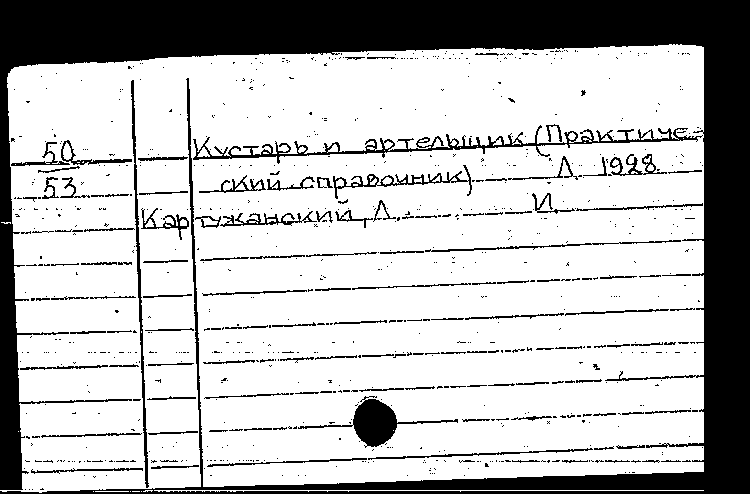 50 Кустарь и артельщик (Практиче-
53 ский справочник) Л 1928
Картужанский, Л. И.